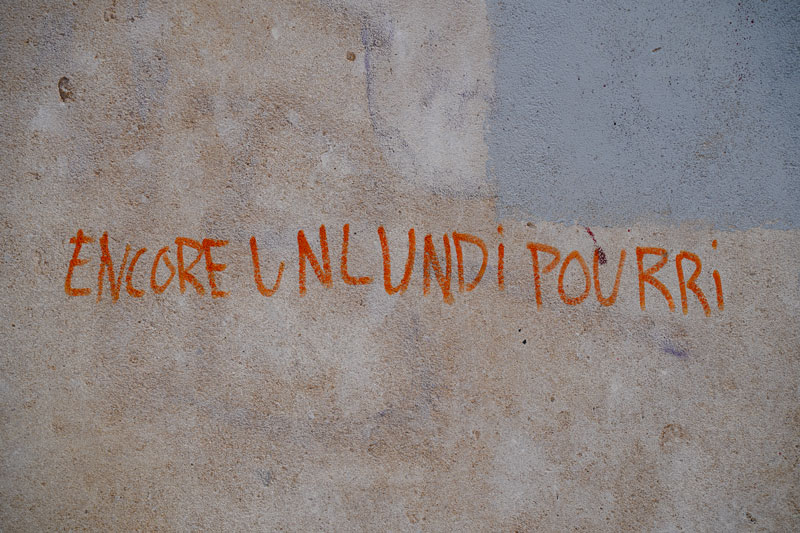 ENCORE UN LUNDi POURRi